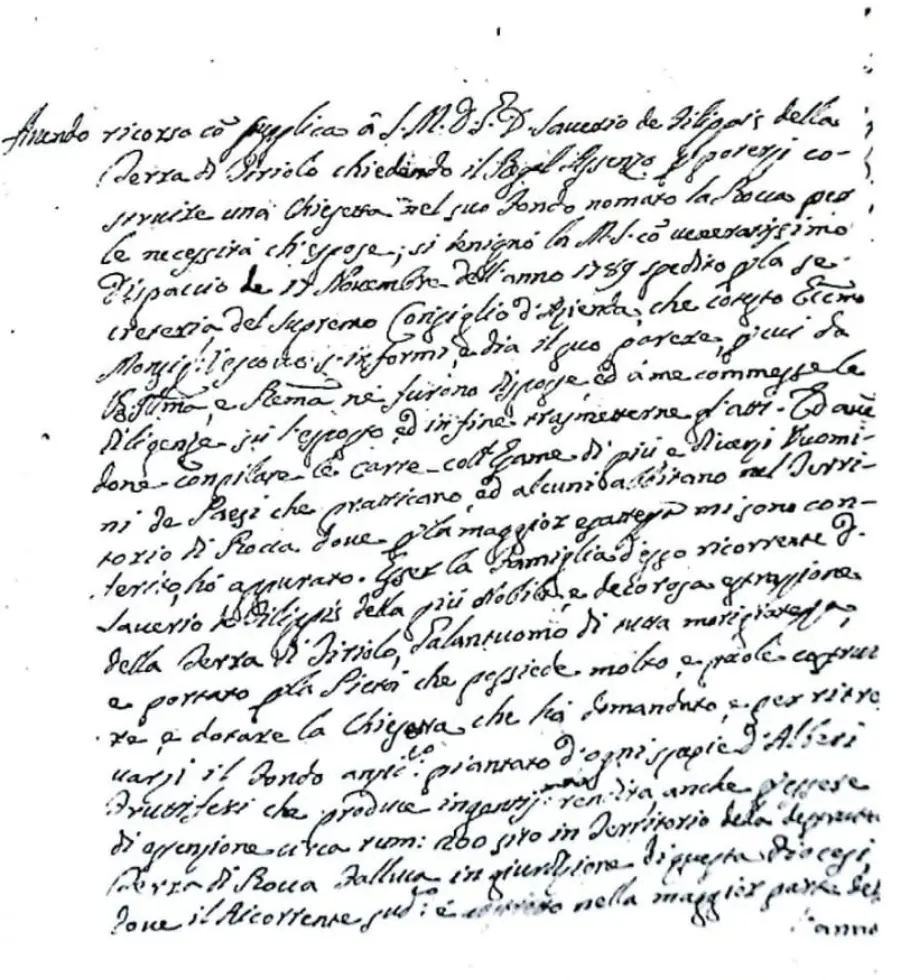 Avendo ricorso cō supplica à S. M. D. S. D. Saverio de Filippis della
Terra di Tiriolo chiedendo il Regal Assenzo potersi co-
struire una Chiesetta nel suo Fondo nomato la Rocca per
le necessità ch'espose; si benignò la M. S. cō veneratissimo
Dispaccio de 17 Novembre dell'anno 1789 spedito p la Se-
creteria del Supremo Consiglio d'Azienda, che cotesto Eccmo
Monsig. Vescovo s'informi, e dia il suo parere, p cui da
V. S. Illma, e Rema ne furono disposte, ed à me commesse le
diligenze su l'esposto, ed in fine trasmetterne gl'atti. Ed aven
done compilate le carte coll'Esame di più e diversi Uomi-
ni de Paesi che pratticano, ed alcuni abbitano nel Terri-
torio di Rocca dove p la maggior mi sono con-
ferito, hò appurato. Esser la Famiglia d'esso ricorrente D.
Saverio de Filippis della più Nobile, e decorosa estrazzione
della Terra di Tiriolo, Galantuomo di tutta morigeratezza,
e portato p la Pietà che possiede molto, e puole costrui
re, e dotare la Chiesetta che hà domandato, e per ritro
varsi il Fondo antico: piantato d'ogni spezie d'Alberi
Fruttiferi che produce ingenti rendita, anche p essere
di estenzione circa tum: 200 sito in Territorio della
Terra di Rocca Falluca in giurdizione di questa Diocesi,
dove il Ricorrente sudo: è nella maggior parte del
l'anno